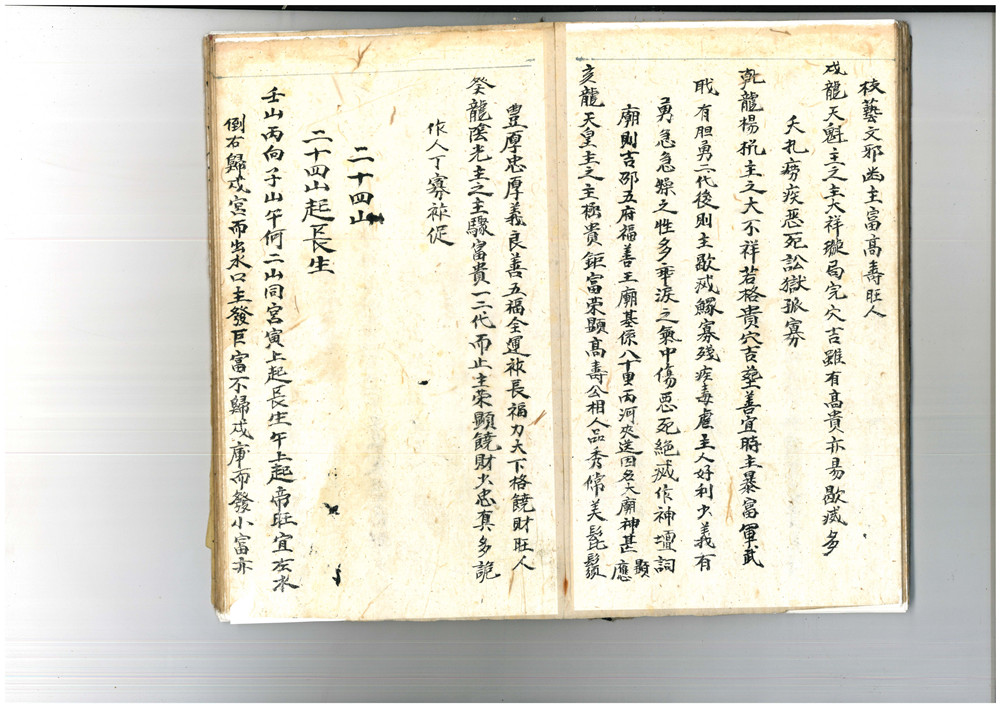 校藝文邪幽主富高壽旺人
戍龍天魁主之主大祥璇局完穴吉雖有高貴亦易歇滅多
夭扎癆疾惡死訟獄孤寡
乾龍楊梲主之大不祥若格貴穴吉塟善宜時主暴富軍武
戢有胆勇二代後則主歇滅鰥寡殘疾毒虐主人好利少義有
勇急急燥之性多乖淚之氣中傷惡死絕滅作神壇詞
廟則吉邵五府福善王廟基係八十里丙河夾送因名大廟神甚顯應
亥龍天皇主之主極貴鉅富荣顯髙壽公相人品秀偹美髭鬚
豊厚忠厚義良善五福全運祿長福力大下格饒財旺人
癸龍陰光主之主驟富貴一二代而止主荣顯饒財少忠真多詭
作人丁寡祿促
二十四山
二十四山起長生
壬山丙向子山午向二山同宮寅上起長生午上起帝旺宜左水
倒右歸戍宮而出水口主發巨富不歸戍庫而發小富亦